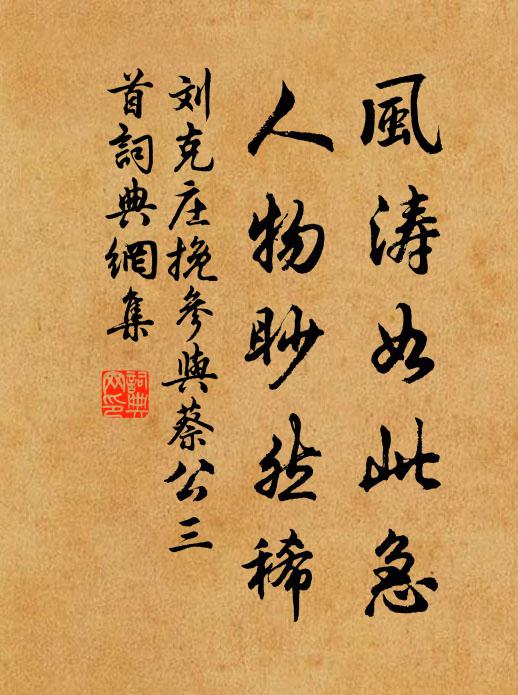 風涛如此急
人物眇然稀
刘克庄挽參與蔡公三
首詞典網集
詞典
网印